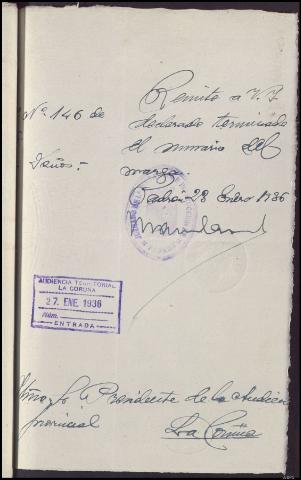 Remito a V.I.
declarado terminado
el sumario del
margen
Padrón 28 Enero 1936
Nº 146 de
Daños.-
AUDIENCIA TERRITORIAL
LA CORUÑA
27. ENE. 1936
Núm.
ENTRADA
Iltmo. Sr. Presidente de la Audiencia
provincial
La Coruña